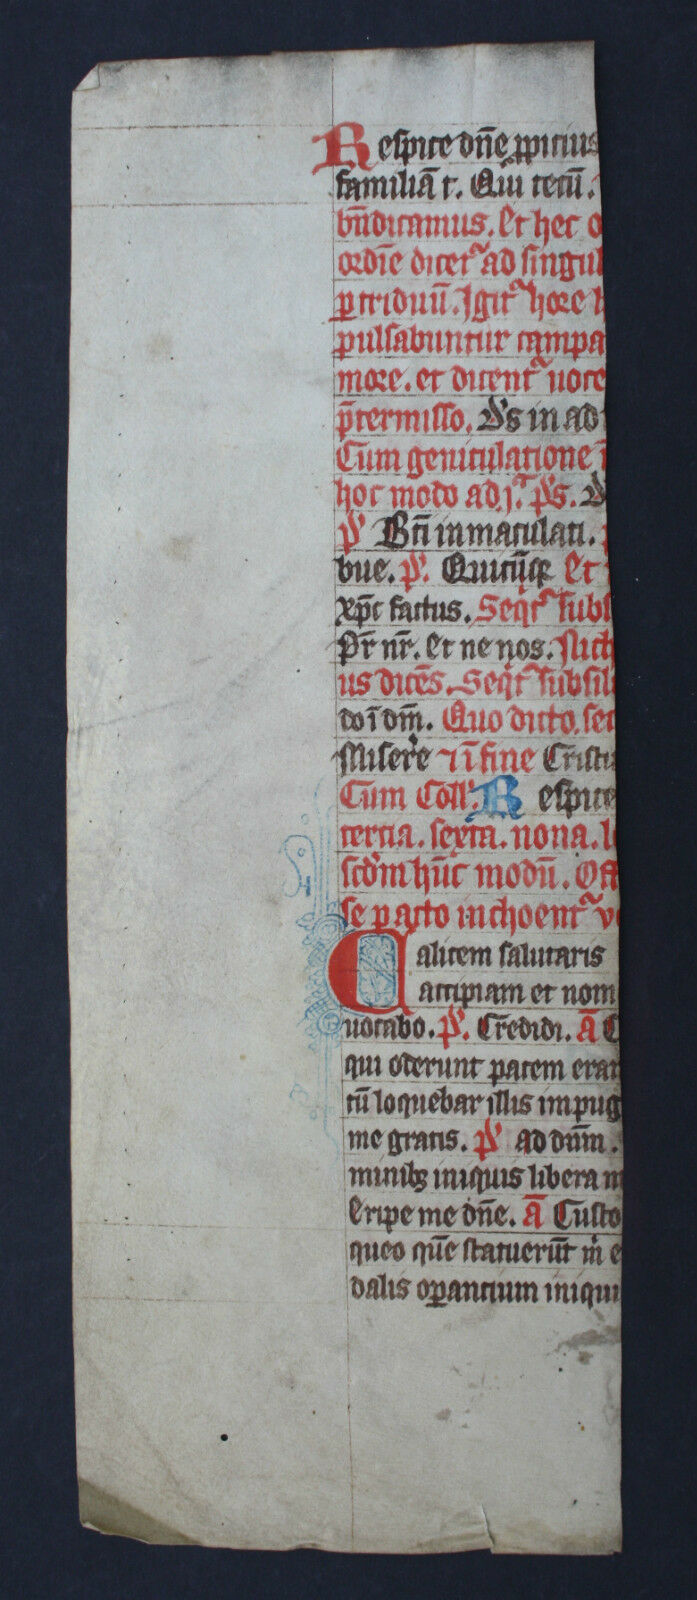 Respice dn̄e ꝓpicius
familiā t. Qui tecū.
bn̄dicamus. Et hec o
ordīe dicetᷣ ad singul
ꝑ triduū. Igitᷣ hore
pulsabuntur campa
more. et dicentᷣ uoce
p̄termisso. Ds in ad
Cum geniculatione
hoc modo ad j. ps.
ps Bt̄i inmaculati.
bue. ps. Quicūqꝫ Et
xp̄c factus. Seqᷣtᷣ subs
Pr̄ nr̄. Et ne nos. Nich
us dicēs. Seqᷣtᷣ subsil
do ī dm̄. Quo dicto. sec
Miserere ⁊ ī fine Cristi
Cum Coll. Respice
tercia. sexta. nona.
scd̄m hūc modū. Off
se ꝑacto inchoentᷣ v
Calicem salutaris
accipiam et nom
uocabo. ps. Credidi. ā C
qui oderunt pacem eram
cū loquebar illis impug
me gratis. ps ad dūm.
minibꝫ iniquis libera m
Eripe me dn̄e. ā Custo
queo quē statuerūt m e
dalis oꝑantium iniqui